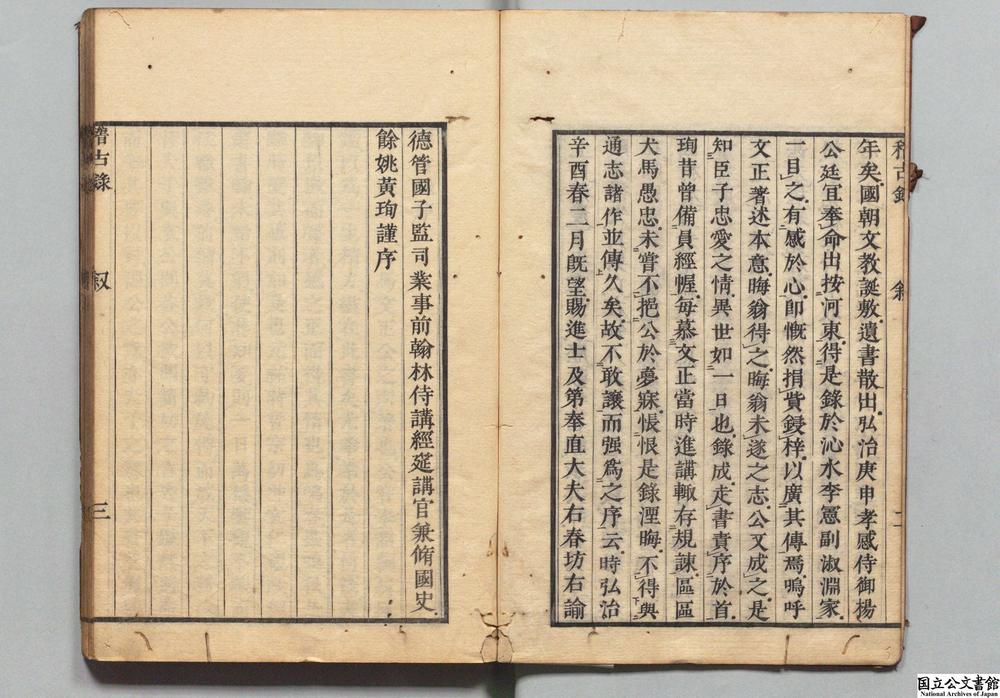 年矣國朝文教誕敷遺書散出弘治庚申孝感侍御楊
公廷宜奉命出按河東得是錄於沁水李憲副淑淵家
一目之有感於心即慨然捐貲鋟梓以廣其傳焉嗚呼
文正著述本意晦翁得之晦翁未遂之志公又成之是
知臣子忠愛之情異世如一日也錄成走書責序於首
珣昔曾備員經幄每慕文正當時進講輙存規諫區區
犬馬愚忠未嘗不挹公於夢寐悵悵是錄湮晦不得與
通志諸作並傳久矣故不敢讓而强為之序云時弘治
辛酉春二月旣望賜進士及第奉直大夫右春坊右諭
稽古錄 敘 二
德管國子監司業事前翰林侍講經筵講官兼脩國史
餘姚黃珣謹序
稽古錄 叙 三
国立公文書館
National Archives of Japan